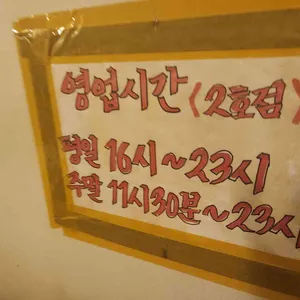 영업시간 <2호점>
평일 16시~23시
주말 11시30분~23시